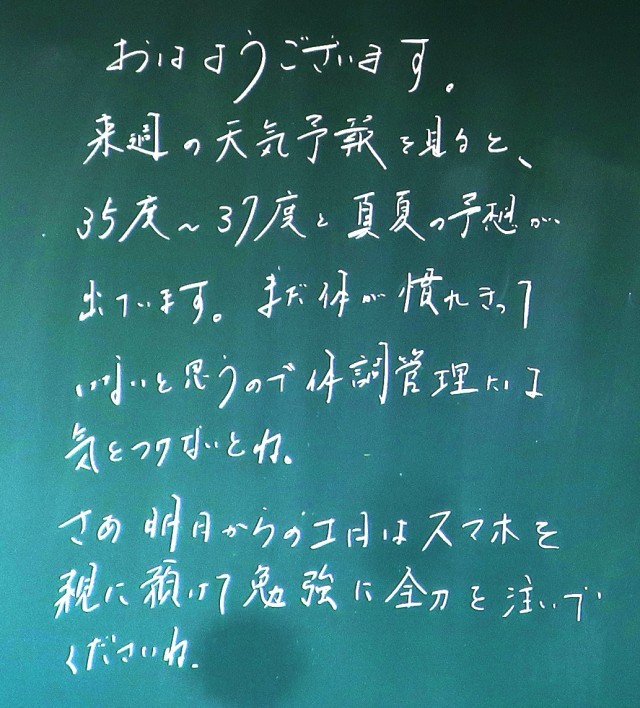 おはようございます。
来週の天気予報を見ると、
35度~37度と真夏の予想が
出ています。まだ体が慣れきって
いないと思うので体調管理には
気をつけないとね。
さあ明日からの工日はスマホを
親に預けて勉強に全力を注いで
くださいね。